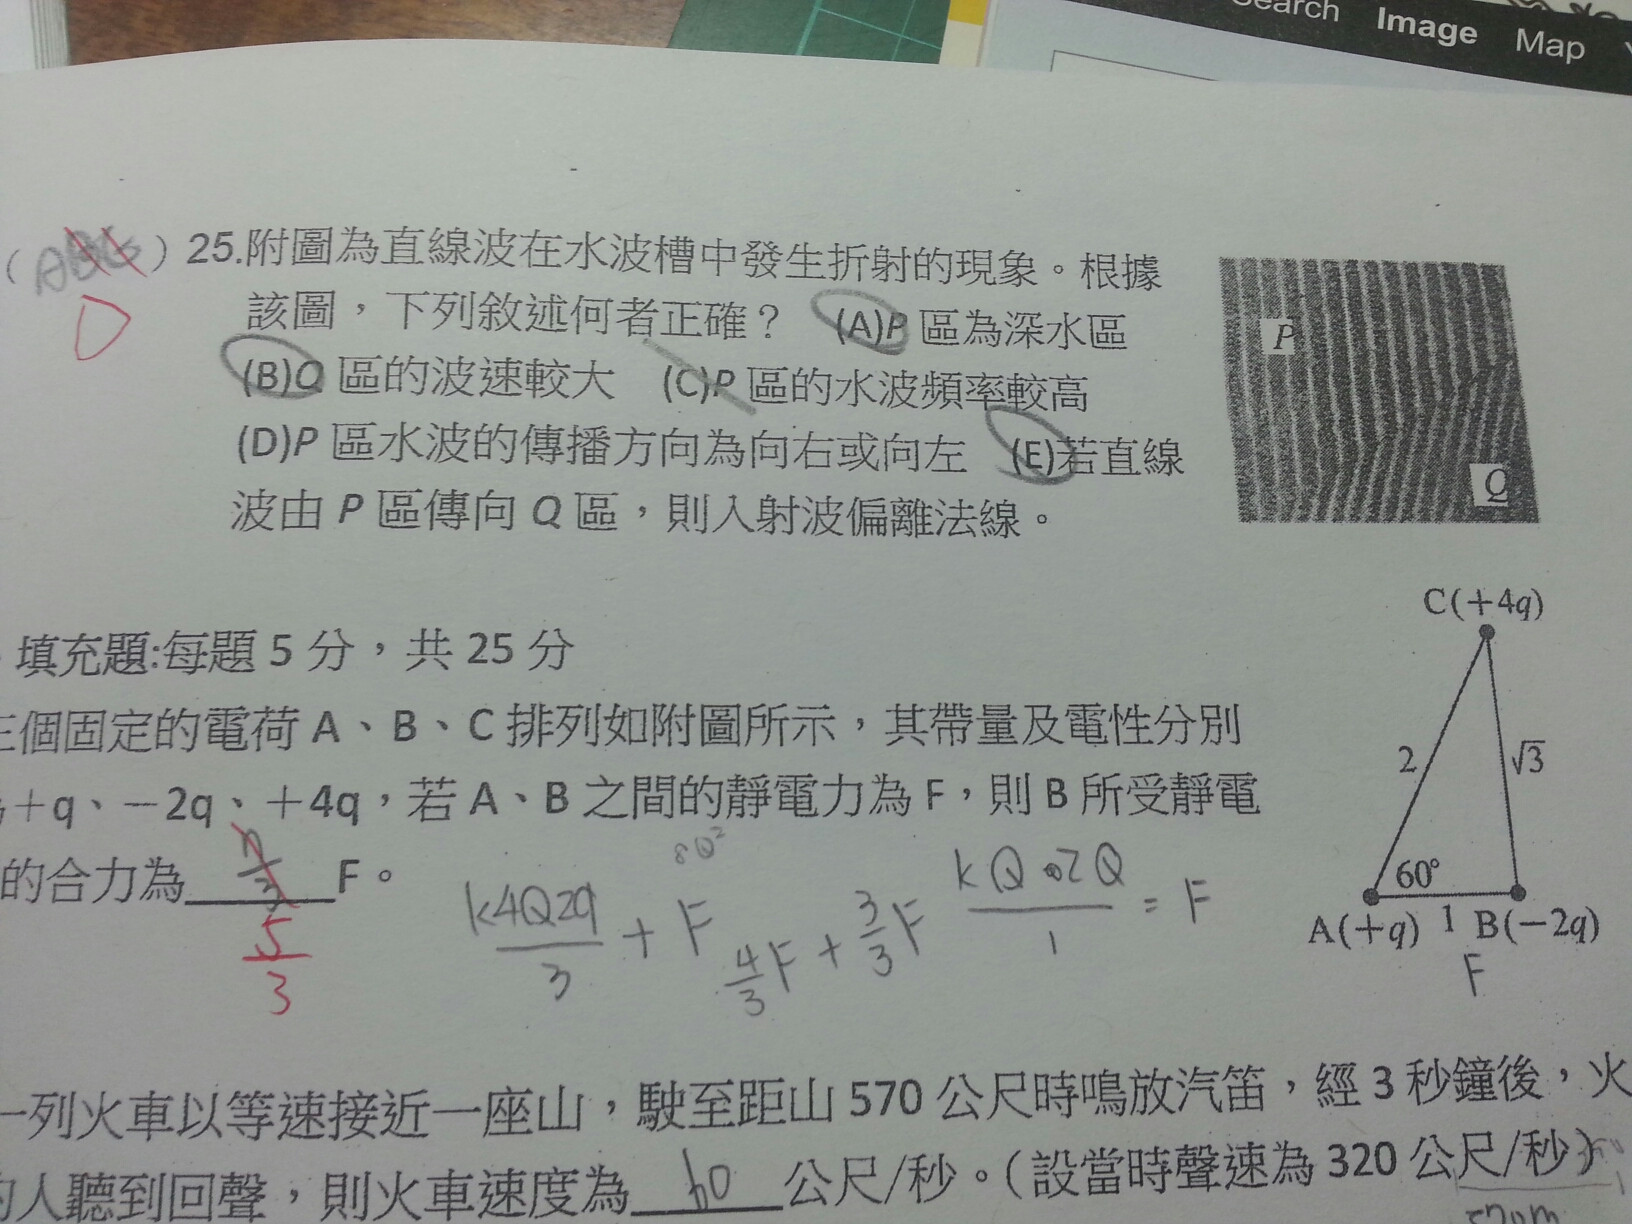 Search Image Map
( ) 25.附圖為直線波在水波槽中發生折射的現象。根據
D
該圖，下列敘述何者正確？ (A)P 區為深水區
(B)Q 區的波速較大 (C)P 區的水波頻率較高
(D)P 區水波的傳播方向為向右或向左 (E)若直線
波由 P 區傳向 Q 區，則入射波偏離法線。
P
Q
填充題:每題 5 分，共 25 分
三個固定的電荷 A、B、C 排列如附圖所示，其帶量及電性分別
+q、－2q、+4q，若 A、B 之間的靜電力為 F，則 B 所受靜電
的合力為 F。
5/3
k4Q2q/3 + F
4/3F + 3/3F
kQ·2Q/1 = F
8Q²
C(+4q)
2 √3
60°
A(+q) 1 B(−2q)
F
一列火車以等速接近一座山，駛至距山 570 公尺時鳴放汽笛，經 3 秒鐘後，火
的人聽到回聲，則火車速度為 60 公尺/秒。(設當時聲速為 320 公尺/秒)
570m